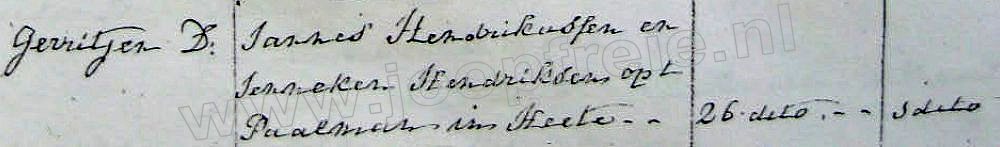 Gerritjen D: Jannes Hendrikussen en
Jenneken Hendriksens opt
Paalman in Heete - - 26 dito. - - 3 dito
www.jooptreje.nl